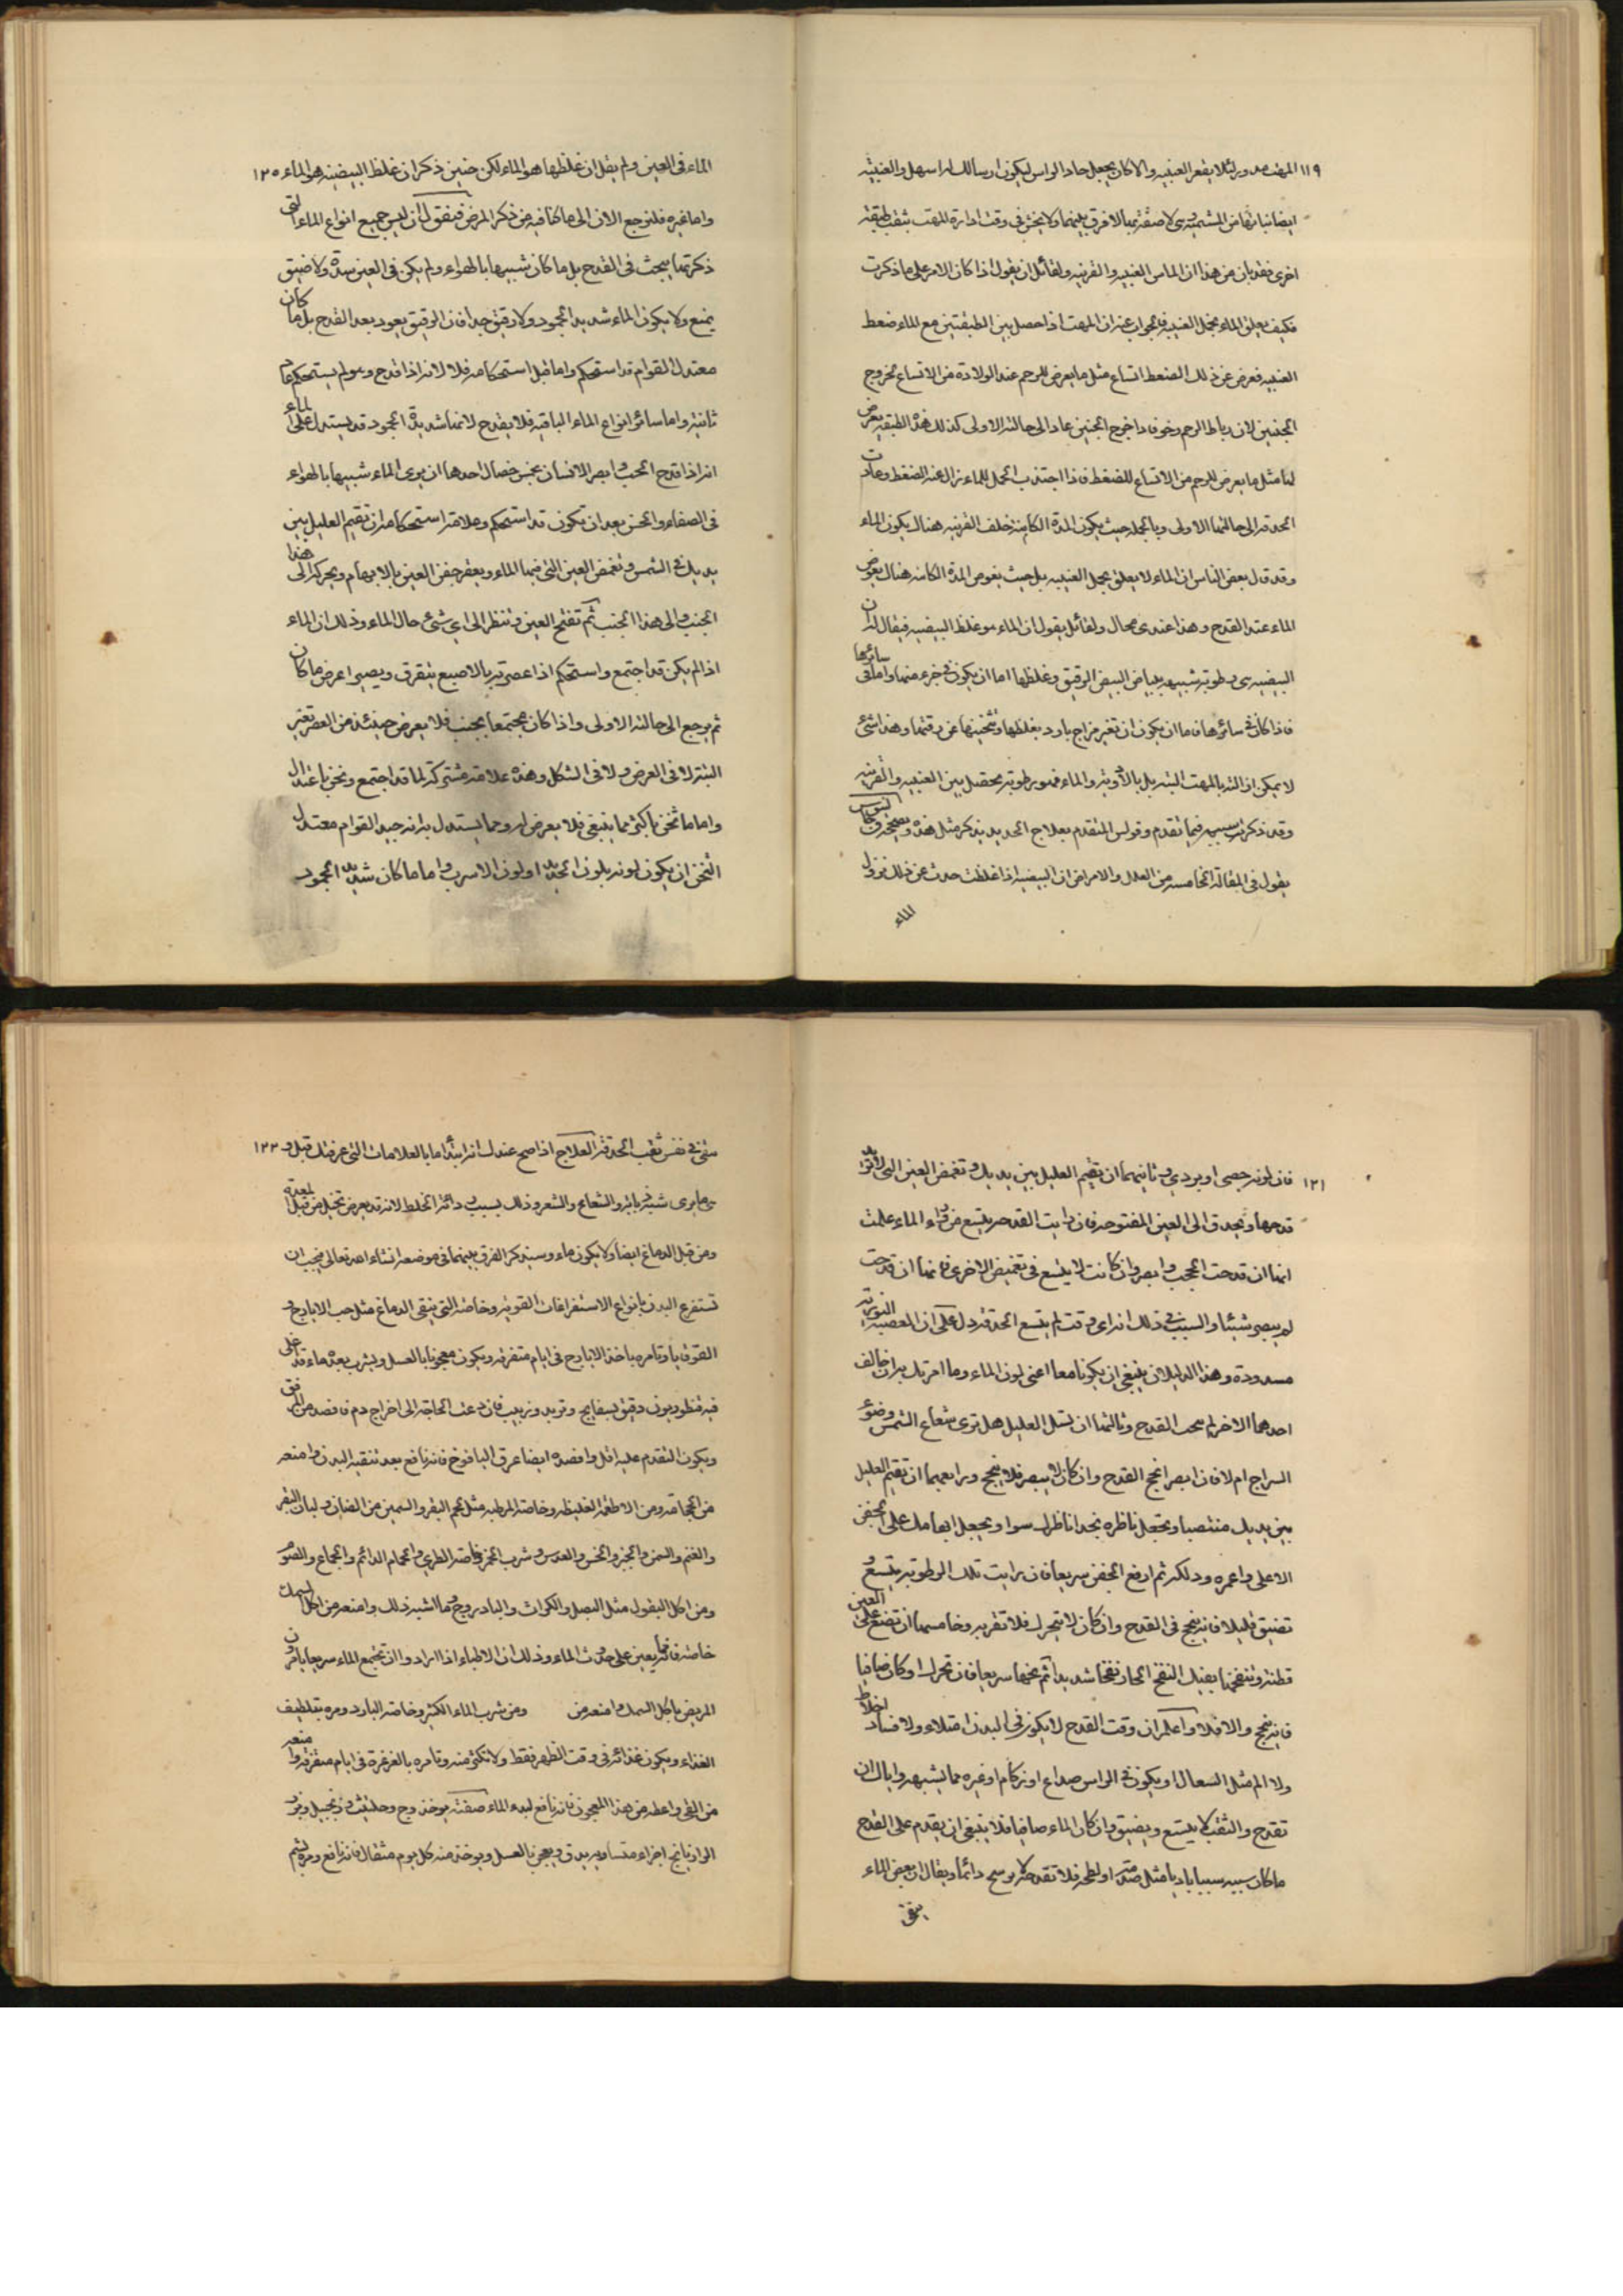 ١١٩ المهت مدور لئلا يقعر العنبيه والا كان يجعل حاد الراس ليكون ارسالك له اسهل والعنبيه
ايضا نباتها من المشيميه وهي لاصقة بها لا فرق بينهما ولا يخش في وقت ادارة المهت يثقب طبقة
اخرى فقد بان من هذا ان الماء بين العنبيه والقرنيه ولقائل ان يقول اذا كان الامر على ما ذكرت
فكيف يعلق الماء بخمل العنبيه فالجواب عنه ان المهت اذا حصل بين الطبقتين مع الماء ضغط
العنبيه فعرض عن ذلك الضغط اتساع مثل ما يعرض للرحم عند الولادة من الاتساع لخروج
الجنين لان رباط الرحم رخو فاذا خرج الجنين عاد الى حالته الاولى كذلك هذه الطبقيه يعرض
لها مثل ما يعرض للرحم من الاتساع للضغط فاذا اجتذب الخمل للماء زال عنه الضغط وعادت
الحدقه الى حالتها الاولى وبالجمله حيث يكون المدة الكامنه خلف القرنيه هناك يكون الماء
وقد قال بعض الناس ان الماء لا يعلق بخمل العنبيه بل حيث يغوص المدة الكامنه هناك يغوص
الماء عند القدح وهذا عندي محال ولقائل يقول ان الماء هو غلظ البيضيه فيقال له ان
البيضيه هي رطوبة شبيهه ببياض البيض الرقيق وغلظها اما ان يكون في جزء منها واما في سائرها
فاذا كان في سائرها فاما ان يكون ان تغير مزاج بارد يغلظها وتثخينها عن رقتها وهذا شئ
لا يمكن ازالته بالمهت البته بل بالادويه والماء فهو رطوبة تحصل بين العنبيه والقرنيه
وقد ذكرت سببه فيما تقدم وقولس المتقدم بعلاج الحديد يذكر مثل هذه ويصححه وجالينوس
يقول في المقاله الخامسه من العلل والامراض ان البيضيه اذا غلظت حدث عن ذلك نزول
الماء
الماء في العين ولم يقل ان غلظها هو الماء لكن حنين ذكر ان غلظ البيضيه هو الماء ١٢٠
واما غيره فلنرجع الان الى ما كنا فيه من ذكر المرض فنقول ان ليس جميع انواع الماء التي
ذكرتها يبحث في القدح بل ما كان شبيها بالهواء ولم يكن في العين سدة ولا ضيق
يمنع ولا يكون الماء شديد الجمود ولا رقيق جدا فان الرقيق يعود بعد القدح بل ما كان
معتدل القوام قد استحكم واما قبل استحكامه فلا لانه اذا قدح وهو لم يستحكم عاد
ثانية واما سائر انواع الماء الباقيه فلا يقدح لانها شديدة الجمود قد يستدل على الماء
انه اذا قدح انجب وابصر الانسان بخمس خصال احدها ان يرى الماء شبيها بالهواء
في الصفاء والحسن بعد ان تكون قد استحكم وعلامة استحكامه ان تقيم العليل بين
يديك في الشمس وتغمض العين التي فيها الماء ويعقر جفن العين بالابهام ويحركه الى هذا
الجنب والى هذا الجنب ثم تفتح العين وتنظر الى اي شئ حال الماء وذلك ان الماء
اذا لم يكن قد اجتمع واستحكم اذا عصرته بالاصبع يتفرق ويصير اعرض ما كان
ثم يرجع الى حالته الاولى واذا كان مجتمعا بجنب فلا يعرض حينئذ من العصر تغير
البته لا في العرض ولا في الشكل وهذه علامة مشتركة لما قد اجتمع وثخن باعتدال
واما ما ثخن باكثر مما ينبغي فلا يعرض له ومما يستدل به انه جيد القوام معتدل
الثخن ان يكون لونه بلون الحديد او لون الاسرب واما ما كان شديد الجمود
١٢١ فان لونه جصي او بردي وثانيهما ان تقيم العليل بين يديك وتغمض العين التي لا تريد
قدحها ويحدق الى العين المفتوحه فان رايت القدحه يتسع من وراء الماء علمت
انها ان قدحت انجب وابصر وان كانت لا يتسع في تغميض الاخرى فانها ان قدحت
لم يبصر شيئا والسبب في ذلك انه اي وقت لم يتسع الحدقه دل على ان العصبه النوريه
مسدودة وهذا الدليلان ينبغي ان يكونا معا اعني لون الماء وما امرتك به ان خالف
احدهما الاخر لم يحب القدح وثالثها ان تسل العليل هل ترى شعاع الشمس وضوء
السراج ام لا فان ابصر انجح القدح وان كان لا يبصر فلا ينجح ورابعهما ان تقيم العليل
بين يديك منتصبا وتجعل ناظره بحذا ناظرك سوا ويجعل ابهامك على الجفن
الاعلى واغمره ودلكه ثم ارفع الجفن سريعا فان رايت تلك الرطوبة يتسع و
تضيق قليلا فانه ينجح في القدح وان كان لا يتحرك فلا تقربه وخامسها ان تضع على العين
قطنة وتنفخها بفيك النفخ الحار نفخا شديدا ثم نحها سريعا فان تحرك او كان صافيا
فانه ينجح والا فلا واعلم ان وقت القدح لا يكون في البدن امتلاء ولا فساد اخلاط
ولا الم مثل السعال او يكون في الراس صداع او زكام او غيره مما يشبهه واياك ان
تقدح والثقب لا يتسع ويضيق وان كان الماء صافيا فلا ينبغي ان يقدم على القدح
ما كان سببه سببا باديا مثل ضربه او لطمه فلا تقدحه لا يرسح دائما ويقال ان بعض الماء
يبقى
يبقى في نفس ثقب الحدقه العلاج اذا صح عندك انه ابتدا ماء بالعلامات التي عرفتك قبل و ١٢٢
هي ما يرى شبه ذبابه والشعاع والشعر وذلك بسبب رداءة الخلط لانه قد يعرض تخيل من قبل المعدة
ومن قبل الدماغ ايضا ولا يكون ماء وسنذكر الفرق بينهما في موضعه انشاء الله تعالى فيجب ان
تستفرغ البدن بانواع الاستفراغات القويه وخاصة التي ينقي الدماغ مثل حب الايارج و
القوقايا وتامره ياخذ الايارج في ايام متفرقه ويكون معجونا بالعسل ويشرب بعده ماء قد غلى
فيه قنطوريون دقيق بسفايج وتربد وزبيب فان دعت الحاجة الى اخراج دم فافصد من المرفق
ويكون التقدم عليه اقل وافصده ايضا عرق اليافوخ فانه نافع بعد تنقية البدن وامنعه
من الحجامه ومن الاطعمة الغليظه وخاصة المرطبه مثل لحم البقر والسمين من الضان ولبان البقر
والغنم والسمن والجبن والخس والعدس وشرب الخمر وخاصة الطري والحمام الدائم والجماع والصوم
ومن اكل البقول مثل البصل والكراث والبادروج وما اشبه ذلك وامنعه من اكل السمك
خاصة فانه يعين على حدوث الماء وذلك ان الاطباء اذا ارادوا ان تجتمع الماء سريعا يامرون
المريض باكل السمك وامنعه من ومن شرب الماء الكثير وخاصة البارد ومره بتلطيف
الغذاء ويكون غذائه في وقت الظهر فقط ولا تكثر منه وتامره بالغرغرة في ايام متفرقه وامنعه
من القي واعطه من هذا المعجون فانه نافع لبدء الماء صفته يوخذ وج وحلتيت وزنجبيل وبزر
الرازيانج اجزاء متساويه يدق ويعجن بالعسل ويوخذ منه كل يوم مثقال فانه نافع ومره يشم